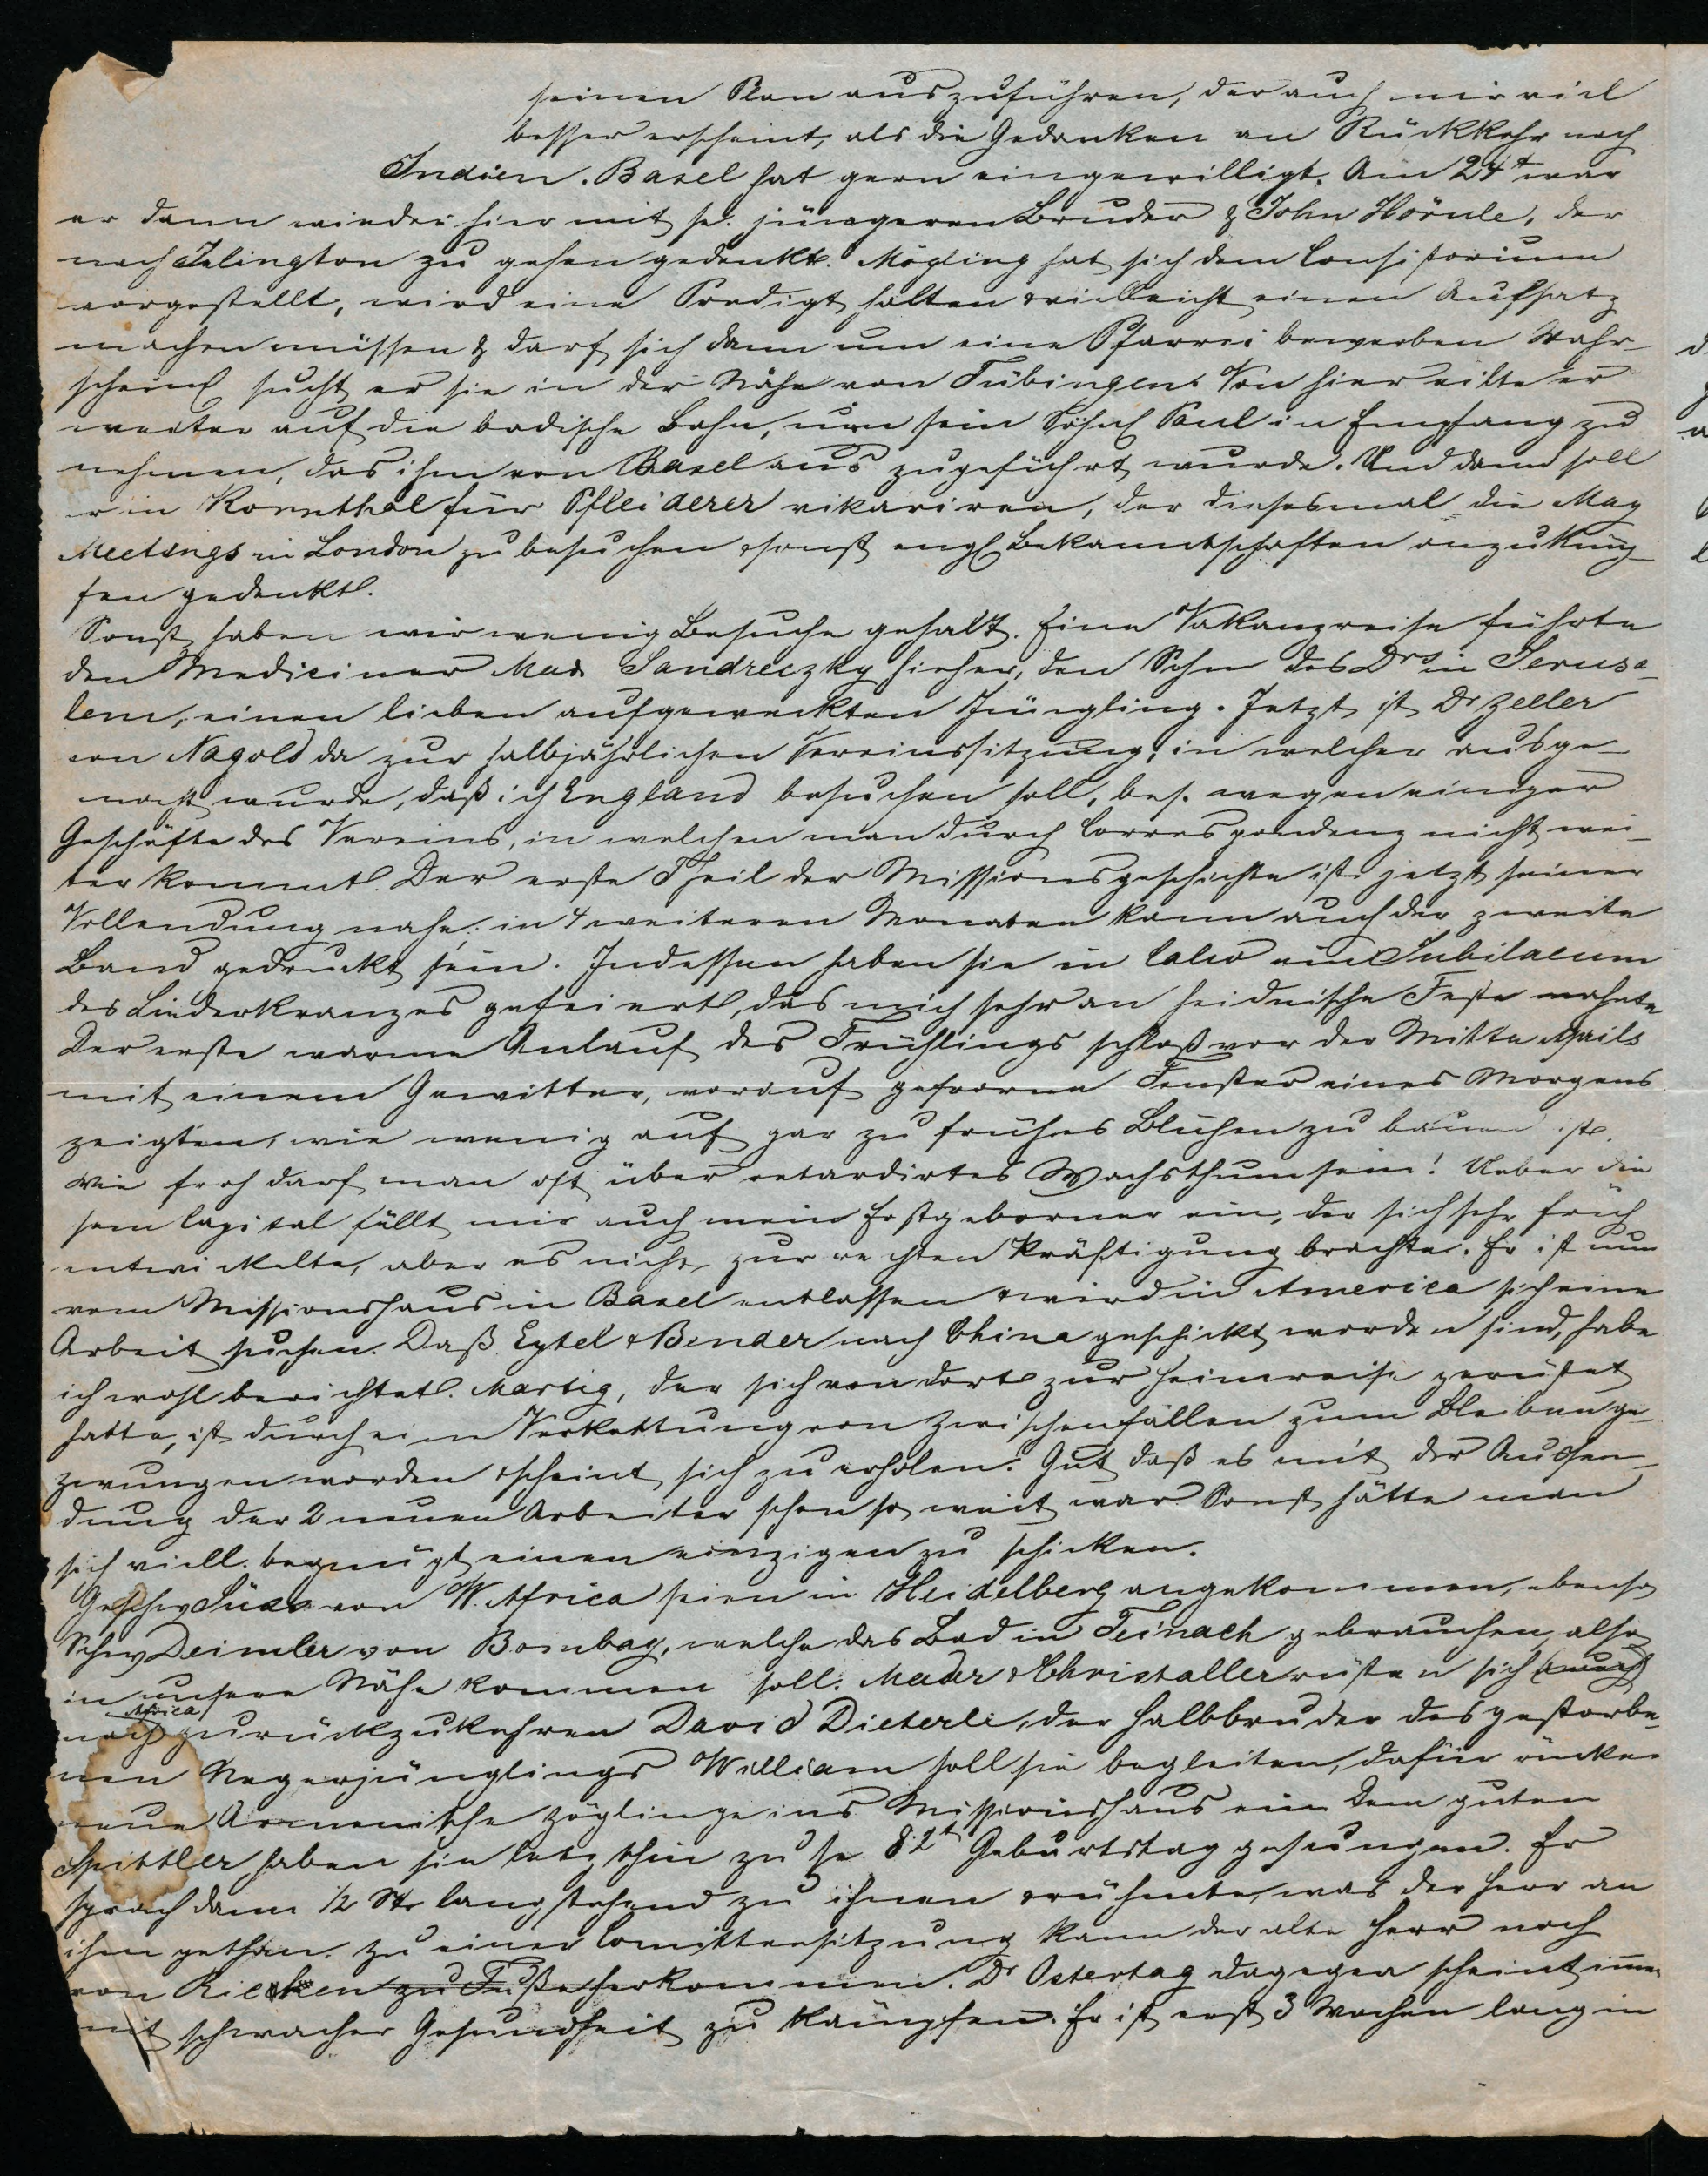 seinen Plan auszuführen, der auch mir viel
besser erscheint, als die Gedanken an Rückkehr nach
Indien. Basel hat gern eingewilligt. Am 24t war
er dann wieder hier mit sr. jüngeren Bruder & John Hörnle, der
nach Islington zu gehen gedenkt. Mögling hat sich dem Consistorium
vorgestellt, wird eine Predigt halten & vielleicht einen Aufsatz
machen müssen & darf sich dann um eine Pfarrei bewerben Wahr-
scheinl sucht er sie in der Nähe von Tübingen. Von hier eilte er
weiter auf die badische Bahn, um sein Söhnl Paul in Empfang zu
nehmen, das ihm von Basel aus zugeführt wurde. Und dann soll
er in Kornthal für Pfleiderer vikariren, der diesesmal die May
Meetings in London zu besuchen & sonst engl Bekanntschaften anzuknüp-
fen gedenkt.
Sonst haben wir wenig Besuche gehabt. Eine Vakanzreise führte
den Mediciner Max Sandreczky hieher, den Sohn des Drs in Jerusa-
lem, einen lieben aufgeweckten Jüngling. Jetzt ist Dr Zeller
von Nagold da zur halbjährlichen Vereinssitzung, in welcher ausge-
macht wurde, daß ich England besuchen soll, bes. wegen einiger
Geschäfte des Vereins, in welchen man durch Correspondenz nicht wei-
ter kommt. Der erste Theil der Missionsgeschichte ist jetzt seiner
Vollendung nahe; in 4 weiteren Monaten kann auch der zweite
Band gedruckt sein. Indessen haben sie in Calw ein Jubilaeum
des Liederkranzes gefeiert, das mich sehr an heidnische Feste mahnte
Der erste warme Anlauf des Frühlings schloß vor der Mitte Aprils
mit einem Gewitter, worauf gefrorne Fenster eines Morgens
zeigten, wie wenig auf gar zu frühes Blühen zu bauen ist.
Wie froh darf man oft über retardirtes Wachsthum sein! Ueber die
sem Capital fällt mir auch mein Erstgeborner ein, der sich sehr früh
entwickelte, aber es nicht zur rechten Kräftigung brachte. Er ist nun
vom Missionshaus in Basel entlassen & wird in America sich eine
Arbeit suchen. Daß Eytel & Bender nach China geschickt worden sind, habe
ich wohl berichtet. Martig, der sich von dort zur Heimreise gerüstet
hatte, ist durch eine Verkettung von Zwischenfällen zum Bleiben ge-
zwungen worden & scheint sich zu erholen. Gut daß es mit der Aussen-
dung der 2 neuen Arbeiter schon so weit war. Sonst hätte man
sich viell. begnügt einen einzigen zu schicken.
Geschw Süss von W. Africa seien in Heidelberg angekommen, ebenso
Schw Deimler von Bombay, welche das Bad in Teinach gebrauchen, also
in unsere Nähe kommen soll. Mader & Christaller rüsten sich
nach Africa zurückzukehren David Dieterle, der Halbbruder des gestorbe-
nen Negerjünglings William soll sie begleiten, dafür rücken
neue Armenische Zöglinge ins Missionshaus ein Dem guten
Spittler haben sie letzthin zu sr 82t Geburtstag gesungen. Er
sprach dann 1/2 St. lang stehend zu ihnen & rühmte, was der Herr an
ihm gethan. Zu einer Comitteesitzung kann der alte Herr noch
von Riechen zu Fuße herkommen. Dr Ostertag dagegen scheint immer
mit schwacher Gesundheit zu kämpfen. Er ist erst 3 Wochen lang in